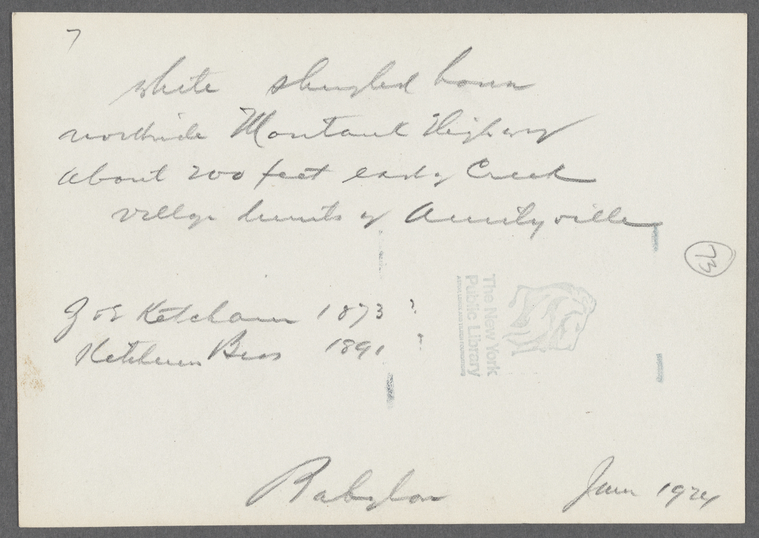 7
white shingled house
northside Montauk Highway
about 200 feet east of Creek
village limits of Amityville
73
Joe Ketcham 1873 ?
Ketcham Bros 1891 ?
The New York
Public Library
Babylon June 1924